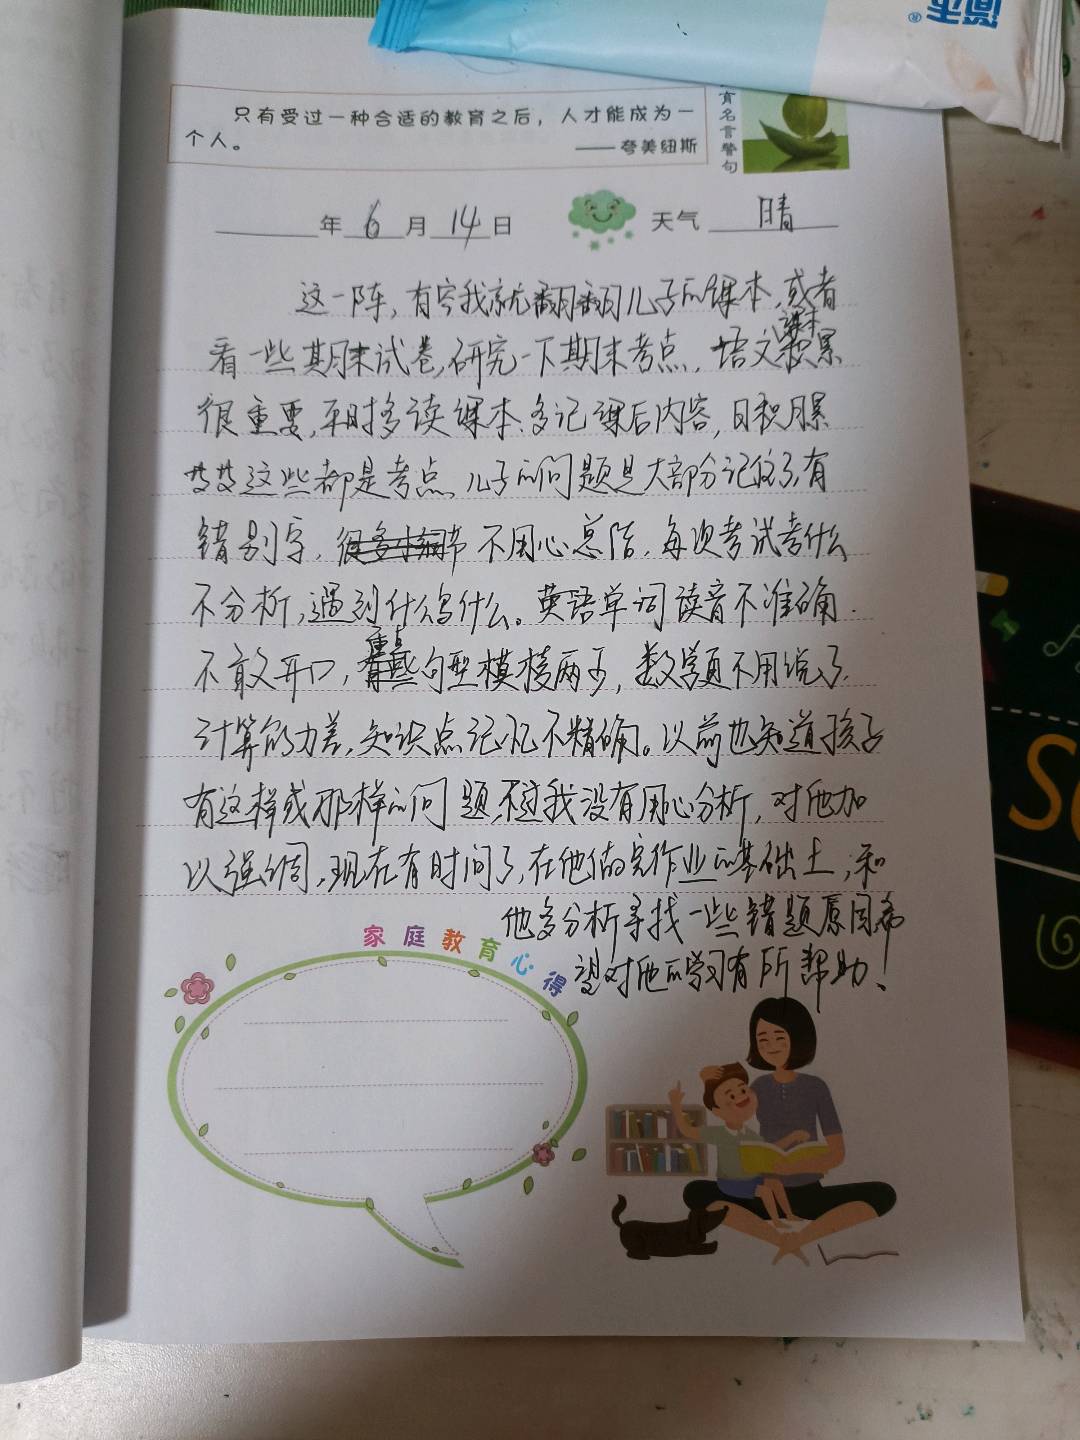 只有受过一种合适的教育之后，人才能成为一
个人。
——夸美纽斯
育名言警句
年 6 月 14 日
天气 晴
这一阵，有空我就翻翻儿子的课本，或者
看一些期末试卷，研究一下期末考点，语文课本积累
很重要，平时多读课本、多记课后内容，日积月累
这些都是考点，儿子的问题是大部分记住了，有
错别字，不用心总结，每次考试考什么
不分析，遇到什么写什么。英语单词读音不准确，
不敢开口，重点句型模棱两可，数学更不用说了，
计算能力差，知识点记忆不精确。以前也知道孩子
有这样或那样的问题，不过我没有用心分析，对他加
以强调，现在有时间了，在他做完作业的基础上，和
他多分析寻找一些错题原因，希
望对他的学习有所帮助！
家庭教育心得